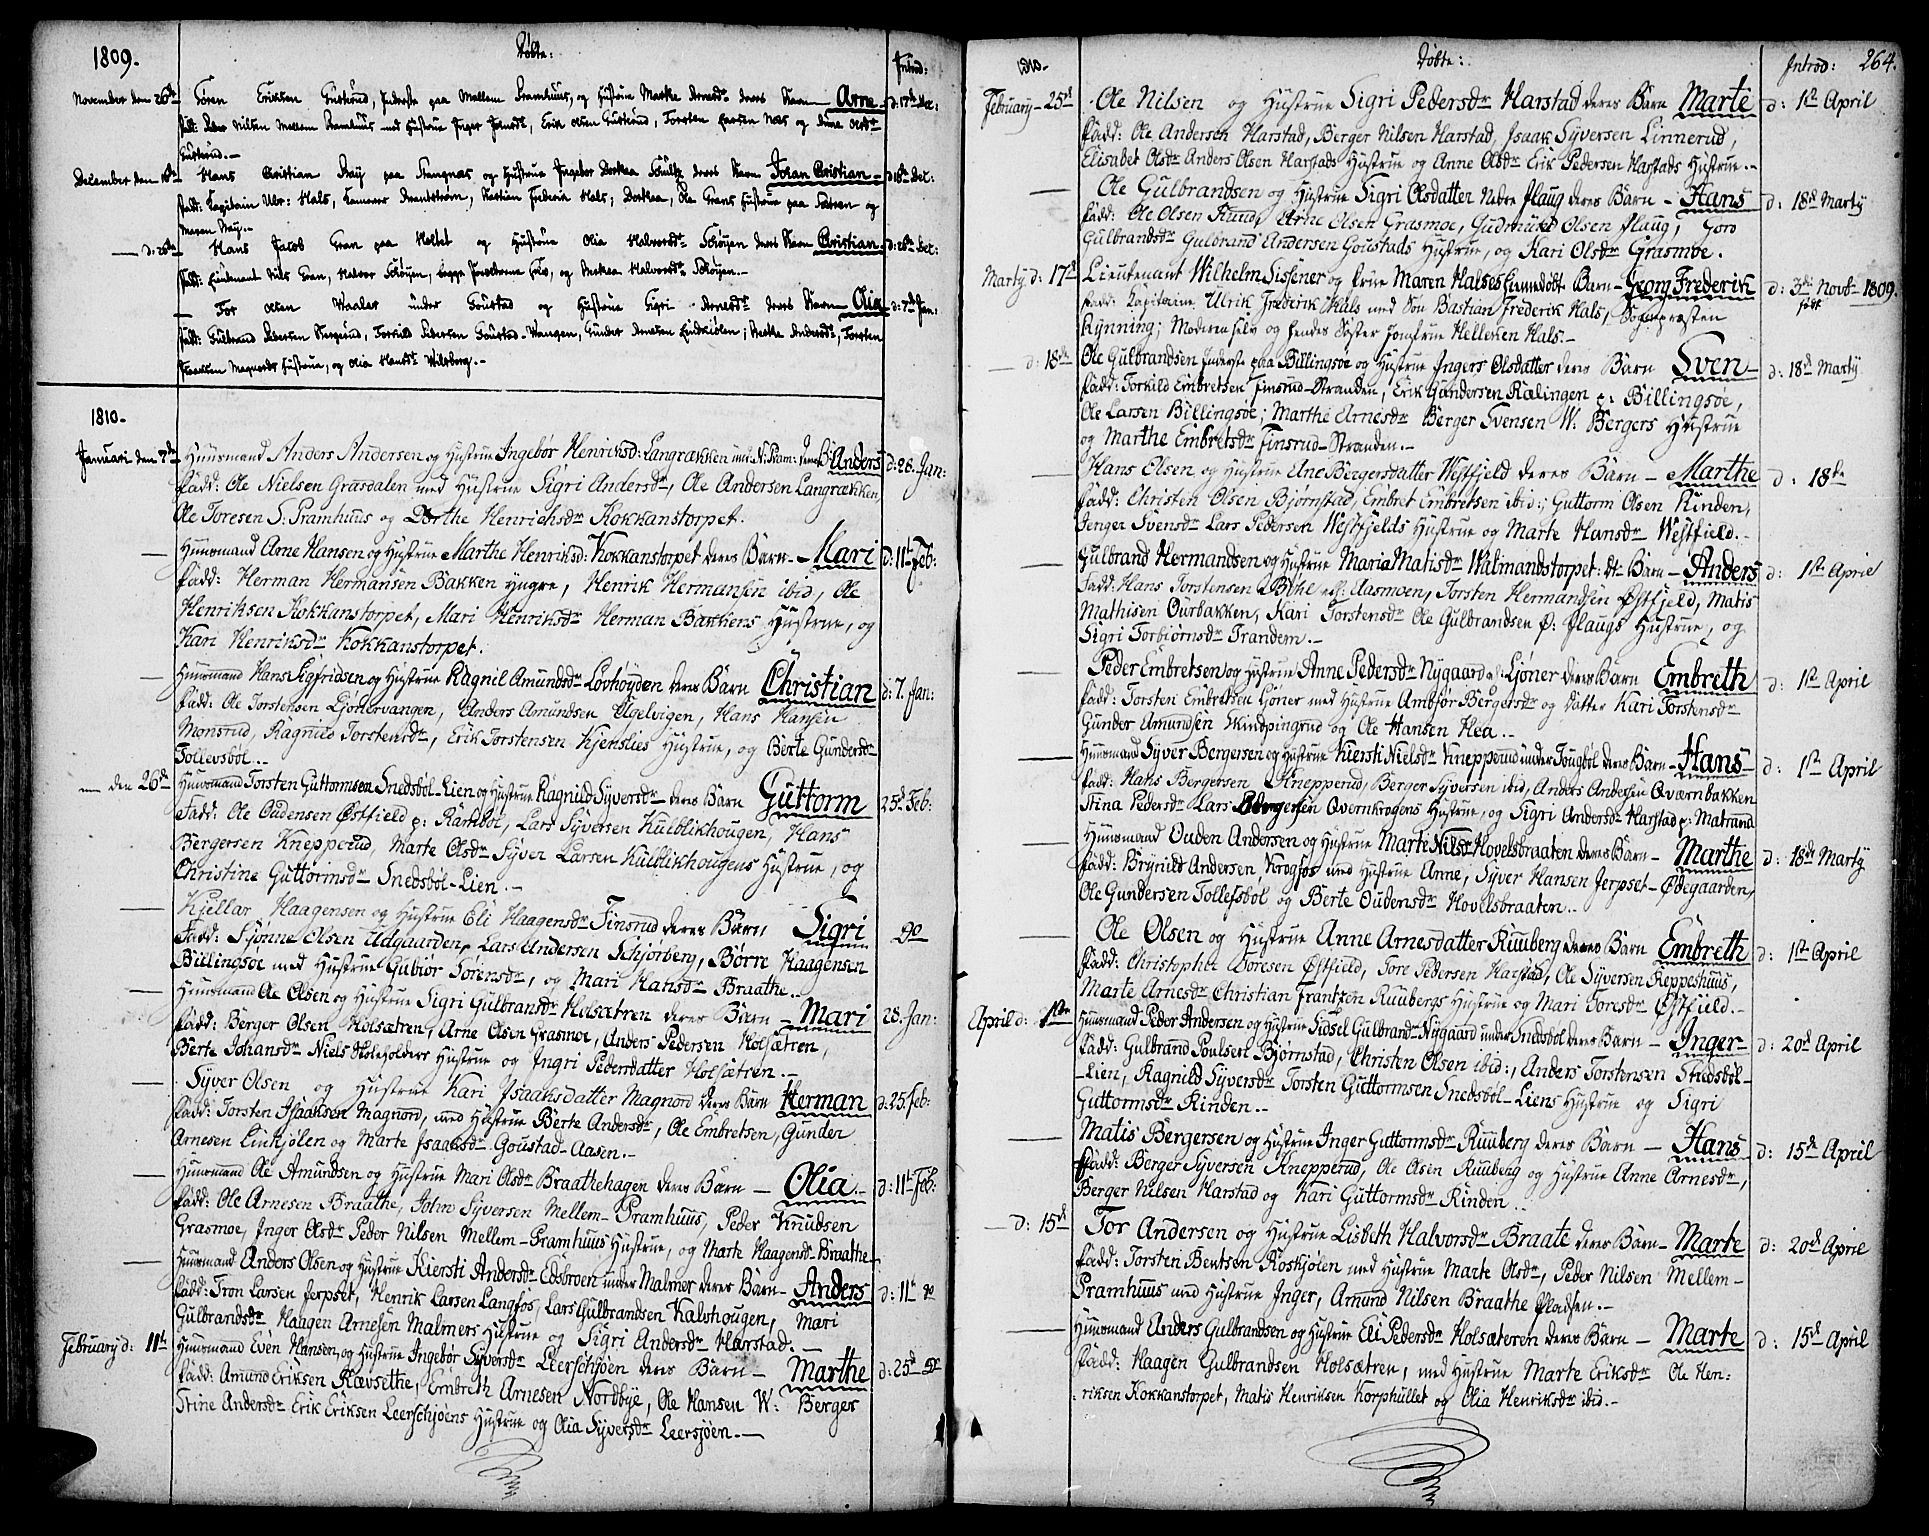 1809.
Døbte:
Introd:
November den 26de Søren Eriksen Gutterud, Inderste paa Mellem Pramhuus, og Hustrue Marthe deres Barn Arne d: 17de Dec:
fadd: Peder Nilsen Mellem Pramhuus med Hustrue Inger, Erik Olsen, Torsten Larsen og Anne Olsdr
December den 10de Hans Christian Ray paa og Hustrue Ingebor Dorthea Schultz deres Barn Johan Christian d: 18de Dec:
fadd: Capitain Ulr: Hals, Bastian Frederik Hals; Dorthea, Ole Grens Hustrue paa og
Maren Ray.
d: 26de Hans Jacob Gran paa Holtet og Hustrue Olia Halvorsdr Schøyen deres Barn Christian d: 26de Dec:
fadd: Lieutenant Niels Gran, Halvor Schøyen, og Halvorsdr Schøyen.
Tor Olsen Waaler under Goustad og Hustrue Sigri Arnesdr deres Barn Olia d: 7de Jan:
fadd: Gulbrand Pedersen, Torkild Pedersen Goustad-Vangen, Gunder Arnesen Linkjølen; Berthe Andersdr, Torsten
Isaaksen Magnords Hustrue, og Olia Hansdr Wilsberg.
1810.
Januari den 7de Huusmand Anders Andersen og Hustrue Ingebør Henriksd: Langrækken deres B: Anders d: 28. Jan:
fadd: Ole Nielsen Grasdalen med Hustrue Sigri Andersdr, Ole Andersen Langrækken,
Ole Toresen S. Pramhuus og Dorthe Henrichsdr Kokkanstorpet.
Huusmand Arne Hansen og Hustrue Marthe Henriksd: Kokkanstorpet deres Barn Mari d: 11te Feb:
fadd: Herman Hermansen Bakken yngre, Henrik Hermansen ibid, Ole
Henriksen Kokkanstorpet, Mari Henriksdr Herman Bakkens Hustrue, og
Kari Henriksdr Kokkanstorpet.
Huusmand Hans Sigfridsen og Hustrue Ragnil Amundsdr Lovhøyden deres Barn Christian d: 7. Jan:
fadd: Ole Torstensen Ljønervangen, Anders Amundsen Ugelvigen, Hans Hansen
Monsrud, Ragnild Torstensdr, Erik Torstensen Kjenslies Hustrue, og Berte Gundersdr
Tollevsbøl.
den 26de Huusmand Torsten Guttormsen Snedsbøl-Lien og Hustrue Ragnild Syversdr deres Barn Guttorm 25de Feb:
Fadd: Ole Oudensen Østfield p: Rambøl, Lars Syversen Kulblikhougen, Hans
Bergersen Knepperud, Marte Olsdr Syver Larsen Kulblikhougens Hustrue, og
Christine Guttormsdr Snedsbøl-Lien.
Kjellar Haagensen og Hustrue Eli Haagensdr Finsrud deres Barn Sigri do
Fadd: Syønne Olsen Udgaarden, Lars Andersen Schjørberg, Børre Haagensen
Billingsøe med Hustrue Gubiør Sørensdr, og Mari Hansdr Braathe.
Huusmand Ole Olsen og Hustrue Sigri Gulbransdr Holsætren deres Barn Mari 28. Jan:
fadd: Berger Olsen Holsætren, Arne Olsen Grasmoe, Anders Pedersen Holsætren,
Berte Johansdr Niels Holeholders Hustrue og Ingri Pedersdatter Holsætren.
Syver Olsen og Hustrue Kari Isaaksdatter Magnord deres Barn Herman d: 25. Feb:
fadd: Torsten Isaaksen Magnord, med Hustrue Berte Andersdr, Ole Embretsen, Gunder
Arnesen Linkjølen og Marte Isaaksdr Goustad-Aasen.
Huusmand Ole Amundsen og Hustrue Mari Olsdr Braathehagen deres Barn Olia d: 11te Feb:
fadd: Ole Arnesen Braathe, John Syversen Mellem-Pramhuus, Peder Knudsen
Grasmoe, Inger Olsdr Peder Nilsen Mellem-Pramhuus Hustrue, og Marte Haagensdr Braathe
Huusmand Anders Olsen og Hustrue Kiersti Andersdr Edsbroen under Malmer deres Barn Anders d: 11te do
fadd: Tron Larsen Jerpset, Henrik Larsen Langfos, Lars Gulbrandsen Kalshougen, Mari
Gulbrandsdr Haagen Arnesen Malmers Hustrue og Sigri Andersdr Harstad.
February d: 11te Huusmand Even Hansen, og Hustrue Ingebør Syversdr Leerschjøen deres Barn Marthe d: 25de do
fadd: Amund Eriksen Rævsethe, Embreth Arnesen Nordbye, Ole Hansen W: Berger
Stine Andersdr Erik Eriksen Leerschjøens Hustrue og Olia Syversdr Leersjøen.
1810.
Døbte:
Introd: 264.
February 25de Ole Nilsen og Hustrue Sigri Pedersdr Harstad deres Barn Marte d: 1ste April
fadd: Ole Andersen Harstad, Berger Nilsen Harstad, Isaak Syversen Linnerud,
Elisabet Olsdr Anders Olsen Harstads Hustrue og Anne Olsdr Erik Pedersen Harstads Hustrue.
Ole Gulbrandsen og Hustrue Sigri Olsdatter Nedre Plaug deres Barn Hans d: 18de Marty
fadd: Ole Olsen Aund, Arne Olsen Grasmoe, Gudmund Olsen Plaug, Goro
Gulbrandsdr Gulbrand Andersen Goustads Hustrue, og Kari Olsdr Grasmoe.
Marty d: 17de Lieutenant Wilhelm Sissener og Frue Maren Halses hiemmedøbt Barn Georg Frederik d: 3die Novbr 1809. født
fadd: Capitaine Ulrik Frederik Hals med Søn Bastian Frederik Hals, Sognepræsten
Rynning; Moderen selv og hendes Søster Jomfrue Hellesen Hals.
d: 18de Ole Gulbrandsen Inderste paa Billingsøe og Hustrue Ingers Olsdatter deres Barn Sven d: 18de Marty
fadd: Torkild Embretsen Finsrud-Stranden, Erik Gundersen Rælingen p: Billingsøe,
Ole Larsen Billingsøe; Marthe Arnesdr Berger Svensen W. Bergers Hustrue
og Marthe Embretsdr Finsrud-Stranden.
Hans Olsen og Hustrue Ane Bergersdatter Westfjeld deres Barn Marthe d: 18de
fadd: Christen Olsen Bjørnstad, Embret Embretsen ibid:, Guttorm Olsen Rinden,
Jenger Svensdr Lars Pedersen Westfjelds Hustrue og Marte Hansdr Westfield.
Gulbrand Hermandsen og Hustrue Maria Matisdr Walmandstorpet: drs Barn Anders d: 1ste April
Fadd: Hans Torstensen Bøhl Aasmoen, Torsten Hermandsen Østfjeld, Matis
Mathisen Ourbakken, Kari Torstensdr Ole Gulbrandsen p: Plaugs Hustrue, og
Sigri Torbiørnsdr Trandem.
Peder Embretsen og Hustrue Anne Pedersdr Nygaard Ljøner deres Barn Embreth d: 1ste April
fadd: Torsten Embretsen Ljøner med Hustrue Ambjør Bergersdr og Datter Kari Torstensdr
Gunder Amundsen Skindpingrud og Ole Hansen Hea.
Huusmand Syver Bergersen og Hustrue Kiersti Nielsdr Knepperud under Tougbøl deres Barn Hans d: 1ste April
fadd: Hans Bergersen Knepperud, Berger Syversen ibid, Anders Andersen Qværnbakken
Stina Pedersdr Lars Bergersen Overnkrogens Hustrue, og Sigri Andersdr Harstad p: Matrand
Huusmand Ouden Andersen og Hustrue Marte Nilsdr Hovelsbraaten deres Barn Marthe d: 18de Marty
fadd: Brynild Andersen Krogfos med Hustrue Anne, Syver Hansen Jerpset-Ødegaarden,
Ole Gundersen Tollefsbøl og Berte Oudensdr Hovelsbraaten.
Ole Olsen og Hustrue Anne Arnesdatter Ruuberg deres Barn Embreth d: 1ste April
fadd: Christopher Toresen Østfield, Tore Pedersen Harstad, Ole Syversen Keppeshuus,
Marte Arnesdr Christian Frantzen Ruubergs Hustrue og Mari Toresdr Østfjeld.
April d: 1ste Huusmand Peder Andersen og Hustrue Sidsel Gulbrandsdr Nygaard under Snedsbøl deres Barn Inger d: 20de April
fadd: Gulbrand Poulsen Bjørnstad, Christen Olsen ibid:, Anders Torstensen Snedsbøl-
-Lien, Ragnild Syversdr Torsten Guttormsen Snedsbøl-Liens Hustrue og Sigri
Guttormsdr Rinden.
Matis Bergersen og Hustrue Inger Guttormsdr Ruuberg deres Barn Hans d: 15de April
Fadd: Berger Syversen Knepperud, Ole Olsen Ruuberg og Hustrue Anne Arnesdr,
Berger Nilsen Harstad og Kari Guttormsdr Rinden.
d: 15de Tor Andersen og Hustrue Lisbeth Halvorsdr Braate deres Barn Marte d: 20de April
fadd: Torsten Bentsen Roskjølen med Hustrue Marte Olsdr, Peder Nilsen Mellem-
Pramhuus med Hustrue Inger, Amund Nilsen Braathe Pladsen.
Huusmand Anders Gulbrandsen og Hustrue Eli Pedersdr Holsæteren deres Barn Marte d: 15de April
fadd: Haagen Gulbrandsen Holsætren, med Hustrue Marte Eriksdr Ole Hen:
:riksen Kokkanstorpet, Matis Henriksen Korphullet og Olia Henriksdr ibid.